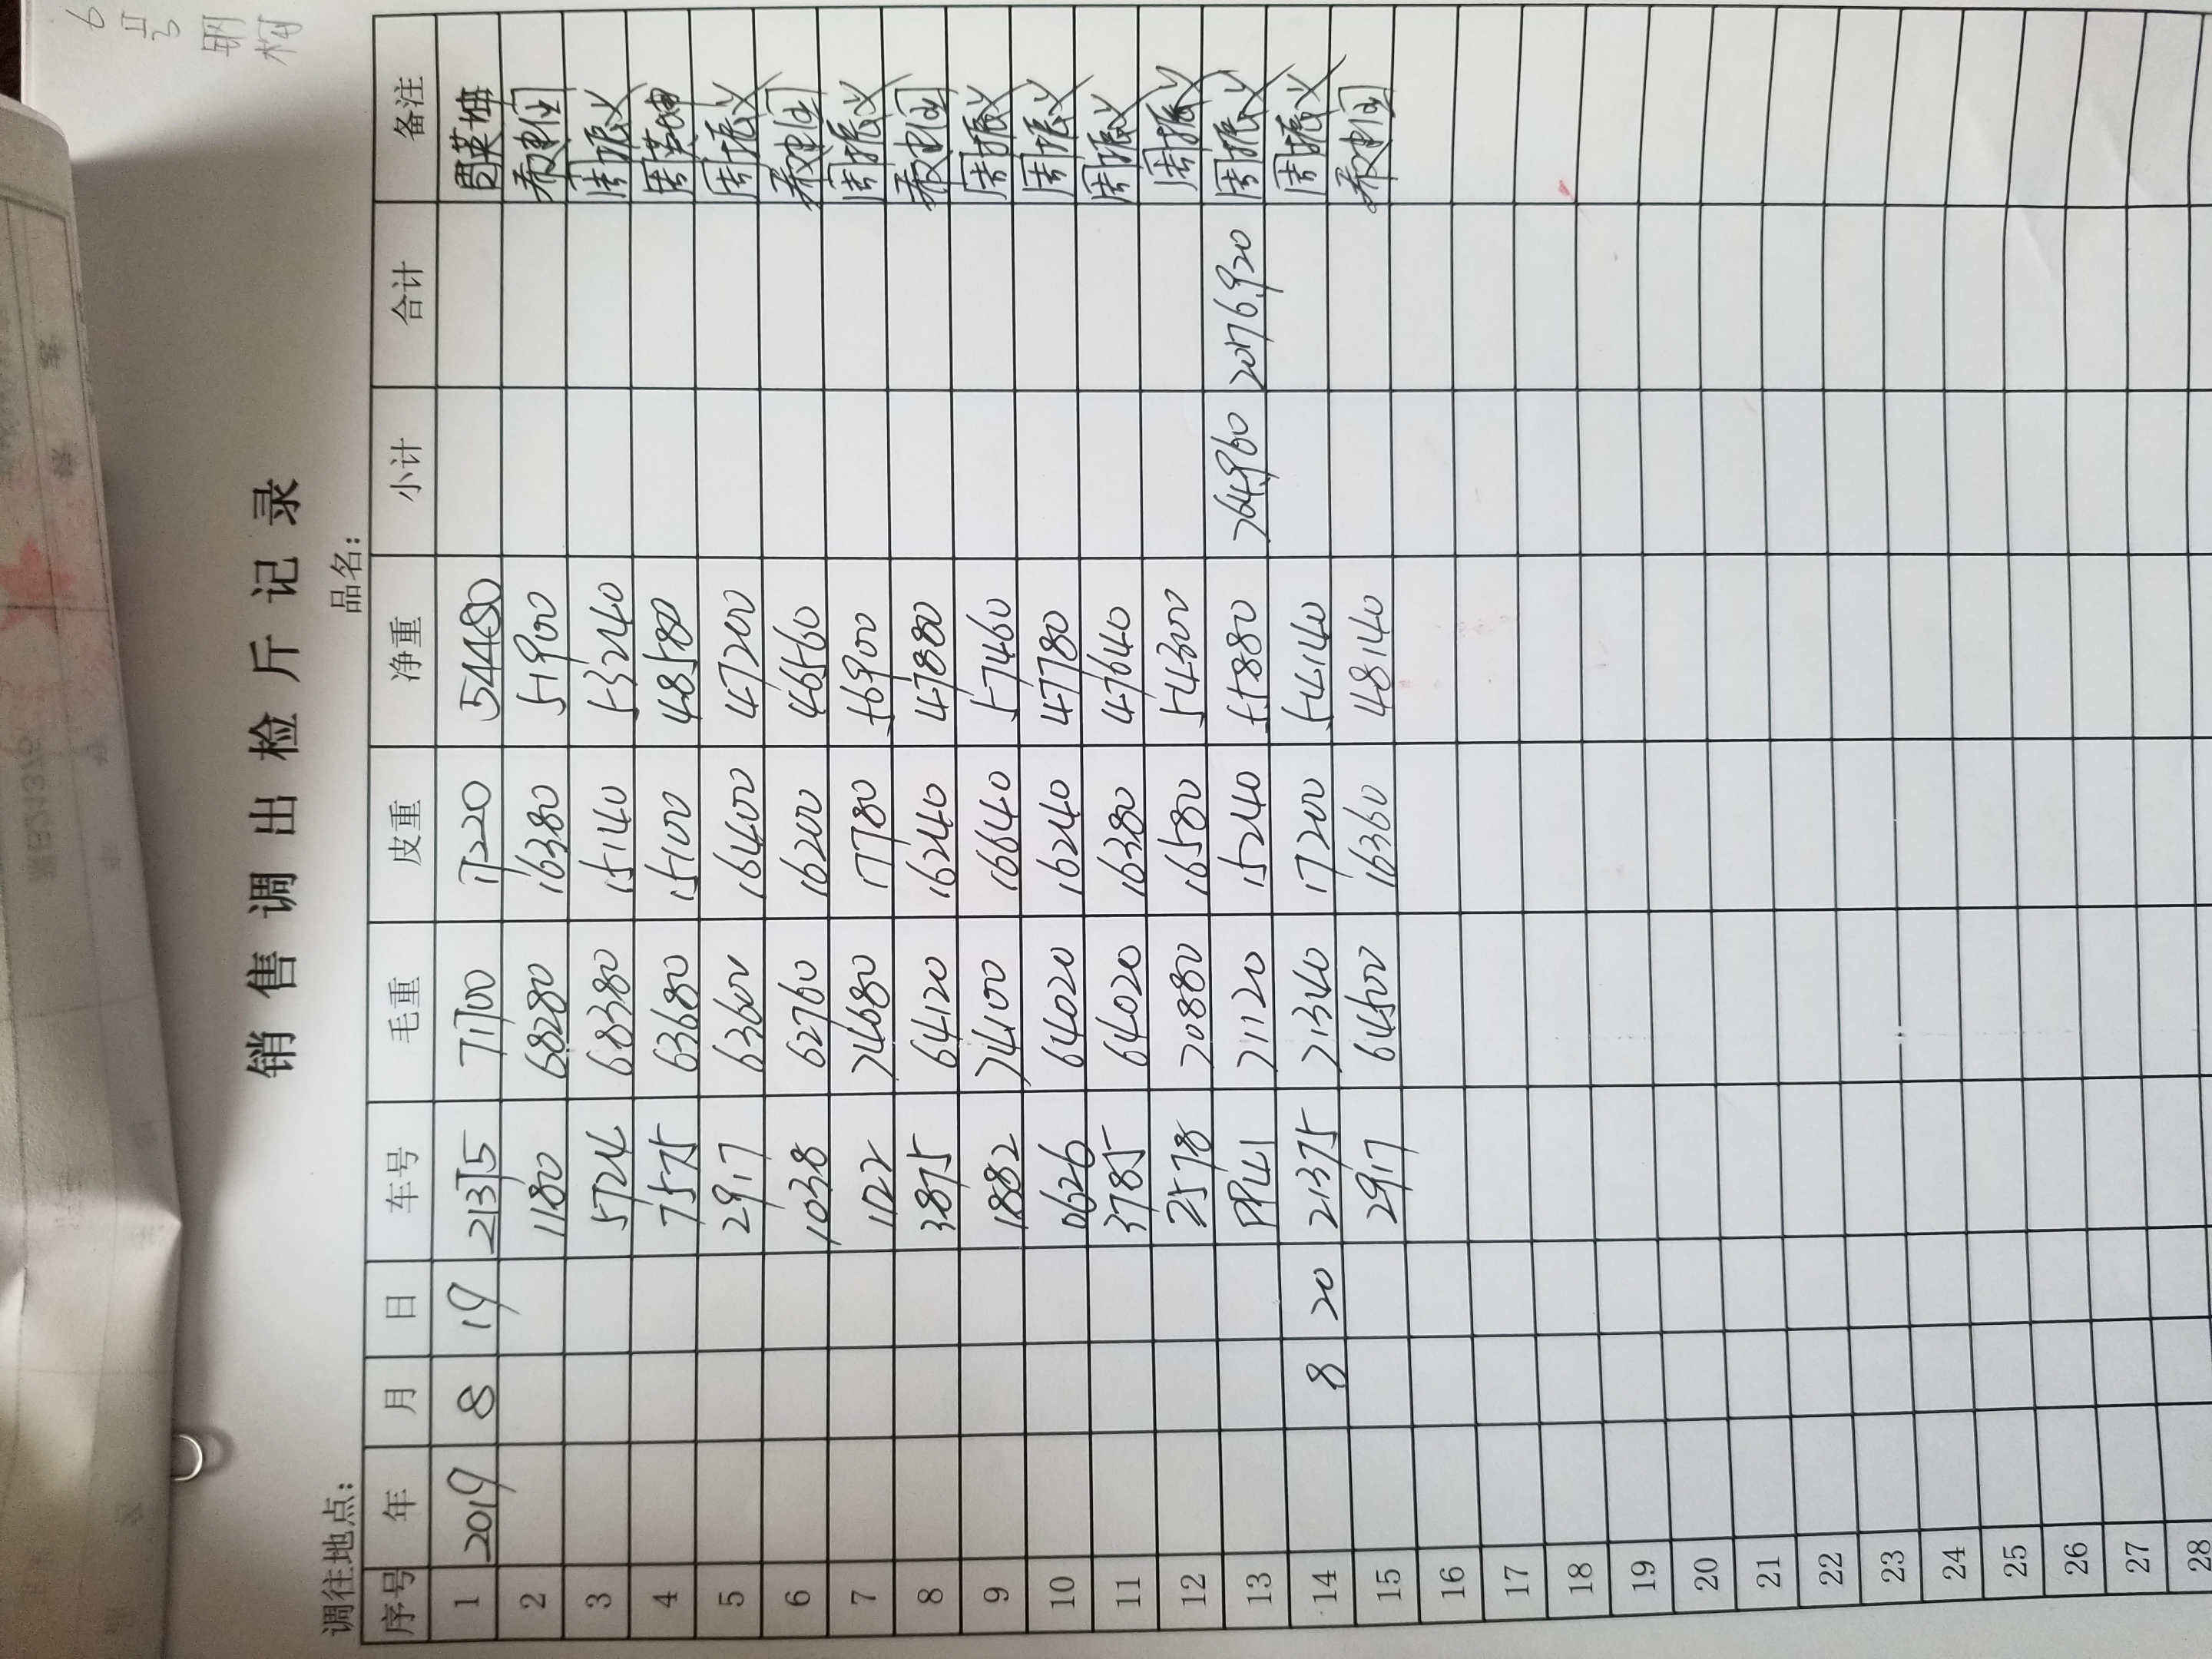 6
号
钢
构
销售调出检斤记录
调往地点： 品名：
序号 年 月 日 车号 毛重 皮重 净重 小计 合计 备注
1 2019 8 19 21375 71700 17220 54480 周英坤
2 1180 68280 16380 51900
3 5724 68380 15140 53240 周振义
4 7575 63680 15100 48580 周英坤
5 2917 63600 16400 47200 周振义
6 1038 62760 16200 46560
7 1122 74680 17780 56900 周振义
8 3875 64120 16240 47880
9 1882 74100 16640 57460 周振义
10 0626 64020 16240 47780 周振义
11 3785 64020 16380 47640 周振义
12 2578 70880 16580 54300 周振义
13 PP41 71120 15240 55880 764.960 周振义
14 8 20 21375 71340 17200 54140 周振义
15 2917 64500 16360 48140
16
17
18
19
20
21
22
23
24
25
26
27
28